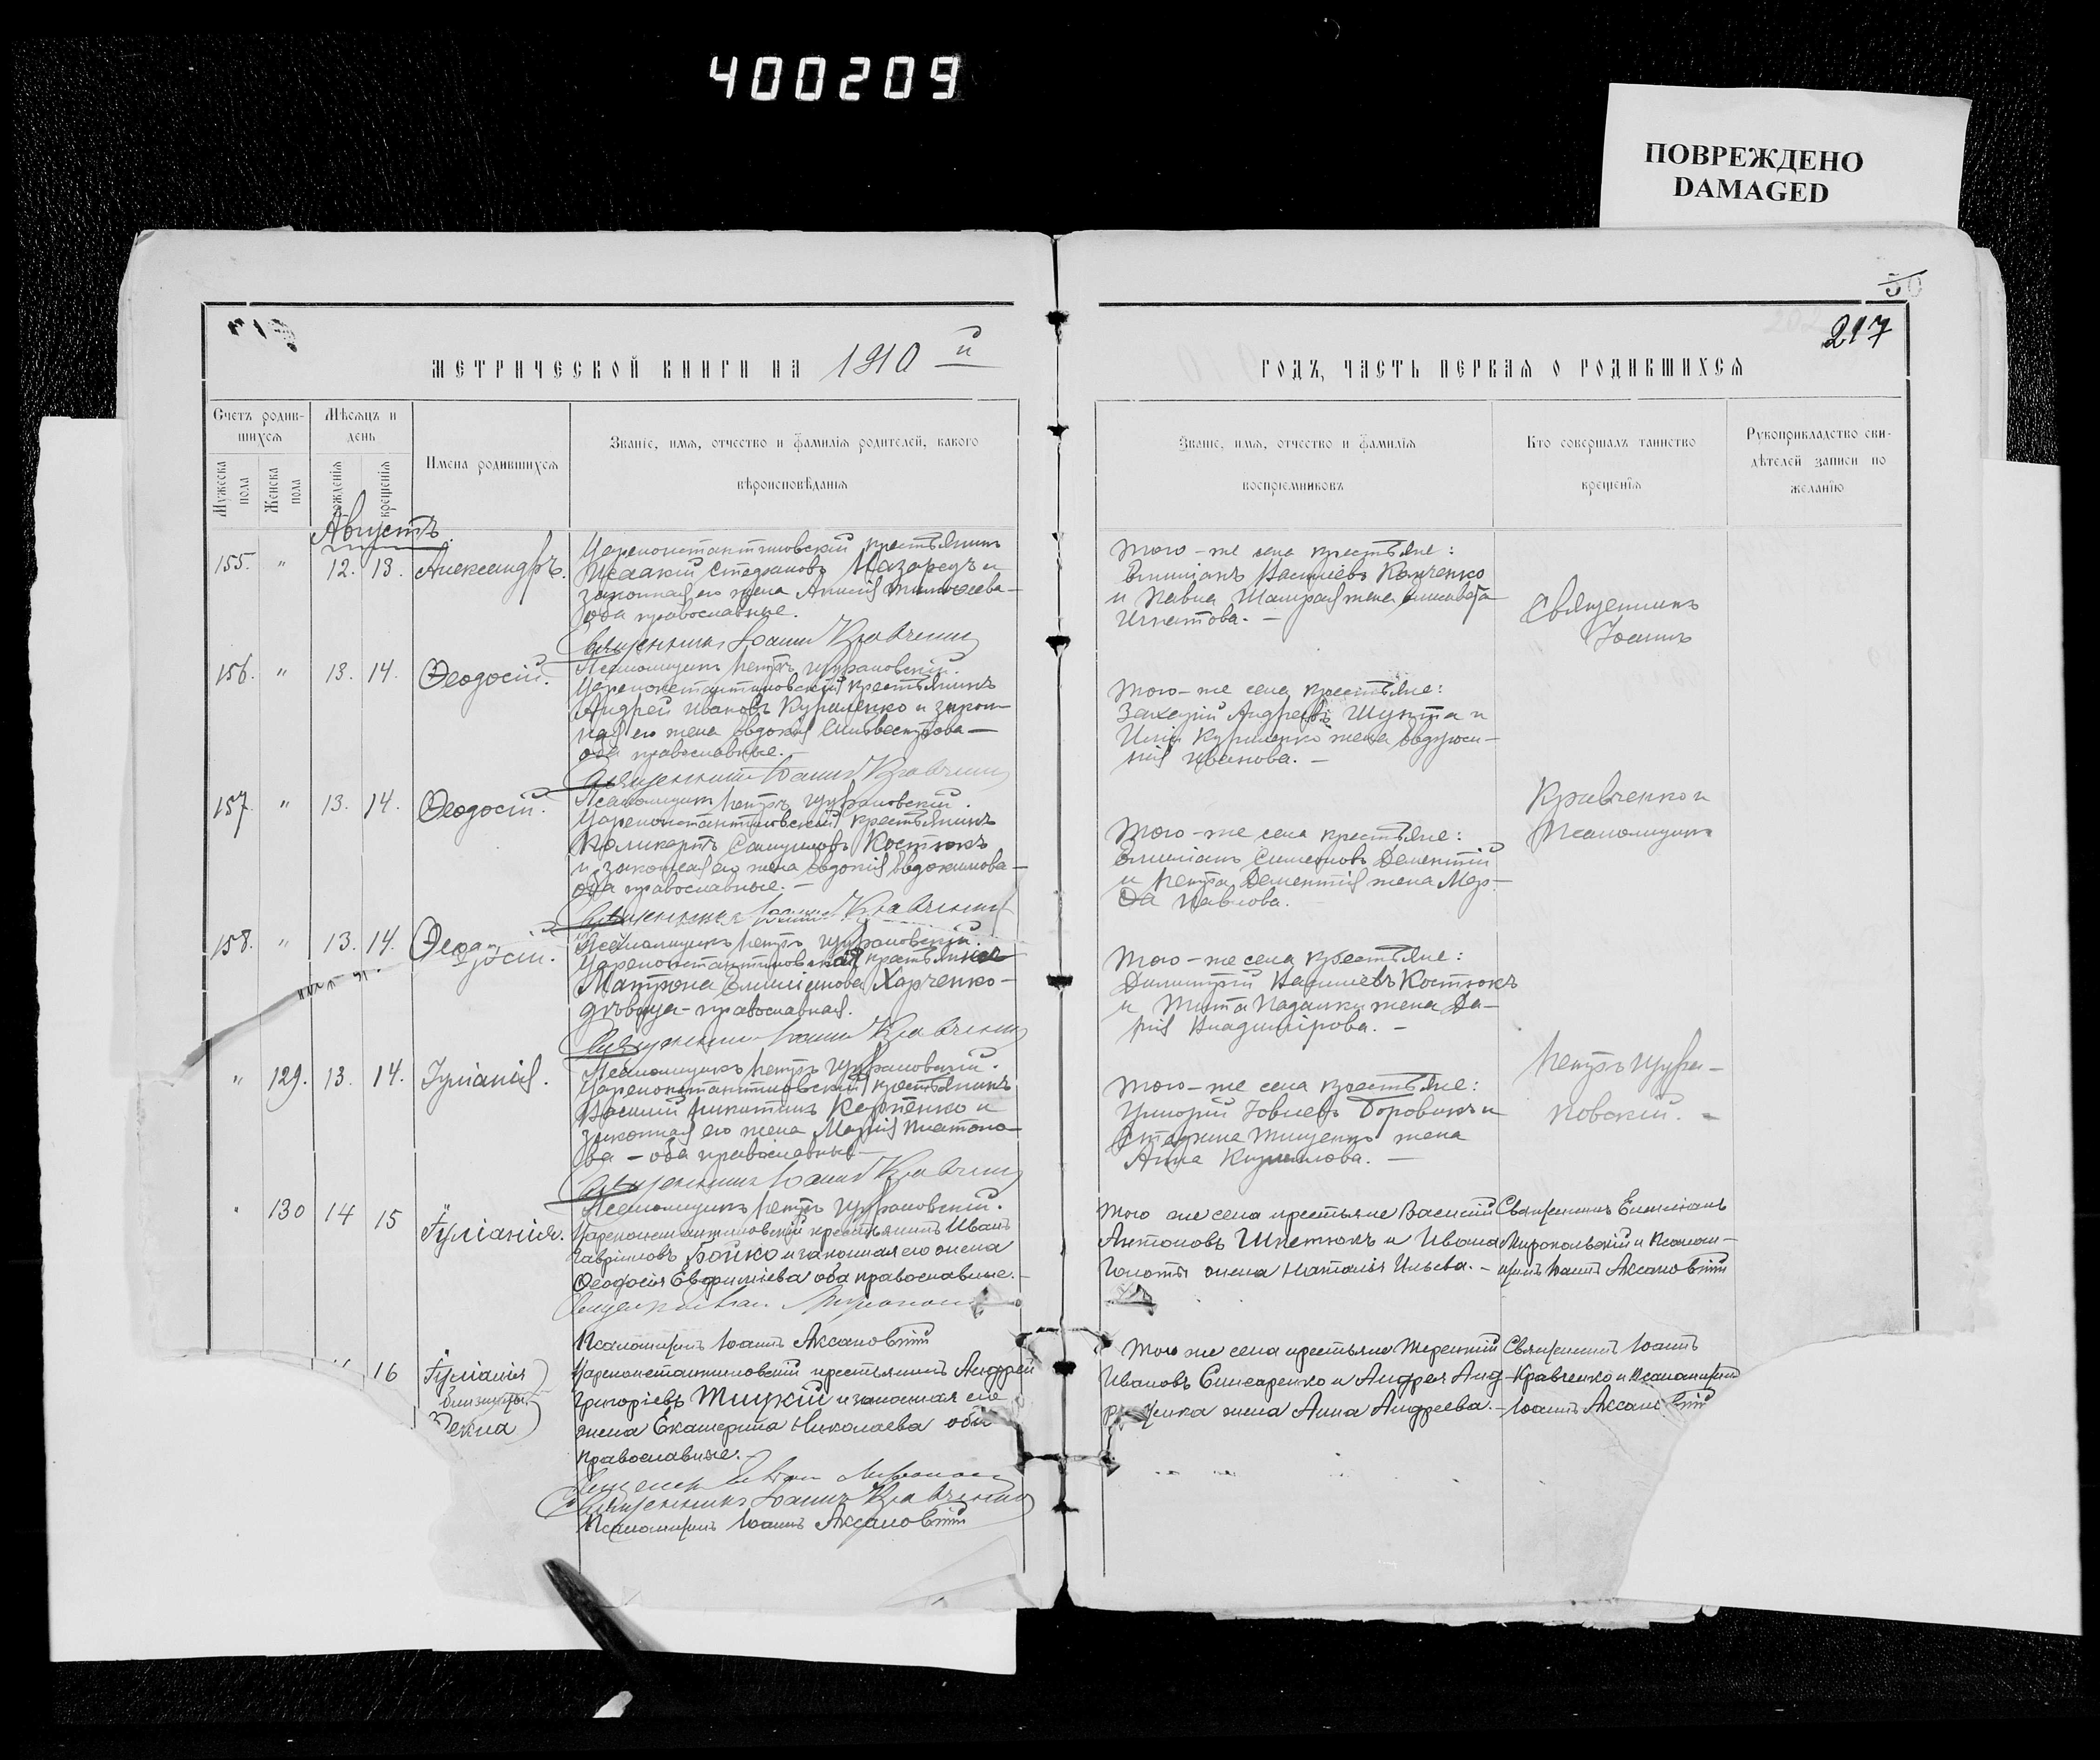 400209
ПОВРЕЖДЕНО
DAMAGED
50
217
МЕТРИЧЕСКОЙ КНИГИ НА 1910 й
ГОДЪ, ЧАСТЬ ПЕРВАЯ О РОДИВШИХСЯ
Счетъ родив-
шихся
Мужеска пола
Женска пола
Мѣсяцъ и
день
рожденія
крещенія
Имена родившихся
Званіе, имя, отчество и фамилія родителей, какого
вѣроисповѣданія
Званіе, имя, отчество и фамилія
воспріемниковъ
Кто совершалъ таинство
крещенія
Рукоприкладство сви-
дѣтелей записи по
желанію
Августъ.
155. " 12. 13. Александръ.
Цареконстантиновскій крестьянинъ
Исаакій Стефановъ
законная его жена
оба православные.
Священникъ Іоаннъ Кравченко
Псаломщикъ Петръ
Того-же села крестьяне:
Емиліанъ Василіевъ
и Павла жена Елисавета
Игнатова. -
Священникъ
Іоаннъ
Кравченко и
Псаломщикъ
Петръ
156. " 13. 14. Ѳеодосій.
Цареконстантиновскій крестьянинъ
Андрей Ивановъ Куриленко и закон-
ная его жена Евдокія Сильвестрова -
оба православные. -
Священникъ Іоаннъ Кравченко
Псаломщикъ Петръ
Того-же села крестьяне:
Захарій Андреевъ Шукта и
Иліи Куриленко жена
Иванова. -
157. " 13. 14. Ѳеодосій.
Цареконстантиновскій крестьянинъ
Поликарпъ Самуиловъ Костюкъ
и законная его жена Евдокія Евдокимова -
оба православные. -
Священникъ Іоаннъ Кравченко
Псаломщикъ Петръ
Того-же села крестьяне:
Емиліанъ Симеоновъ Дементій
и Петра Дементія жена Мар-
ѳа Павлова.
158. " 13. 14. Ѳеодосій.
Цареконстантиновская крестьянка
Матрона Емиліанова Харченко -
дѣвица - православная.
Священникъ Іоаннъ Кравченко
Псаломщикъ Петръ
Того-же села крестьяне:
Димитрій Василіевъ Костюкъ
и Тита жена Да-
рія Владимірова. -
" 129. 13. 14. Іуліанія.
Цареконстантиновскій крестьянинъ
Василій Никитинъ Карпенко и
законная его жена Марія Платоно-
ва - оба православные -
Священникъ Іоаннъ Кравченко
Псаломщикъ Петръ
Того-же села крестьяне:
Григорій Іовлевъ Боровикъ и
Стефана Тищенко жена
Анна Кириллова. -
" 130 14 15 Іуліанія.
Цареконстантиновскій крестьянинъ Иванъ
Гавріиловъ Бойко и законная его жена
Ѳеодосія Евфиміева оба православные. -
Псаломщикъ Іоаннъ Аксановскій
Того же села крестьяне Василій
Антоновъ Шнетюкъ и Ивана
Голоты жена Наталія Ильева. -
Священникъ Емиліанъ
Миропольскій и Псалом-
щикъ Іоаннъ Аксановскій
" 16 Іуліанія
близнецы
Ѳекла
Цареконстантиновскій крестьянинъ Андрей
Григоріевъ Тицкій и законная его
жена Екатерина Николаева оба
православные. -
Священникъ Іоаннъ Кравченко
Псаломщикъ Іоаннъ Аксановскій
Того же села крестьяне Терентій
Ивановъ Слисаренко и Андрея Анд-
жена Анна Андреева. -
Священникъ Іоаннъ
Кравченко и Псаломщикъ
Іоаннъ